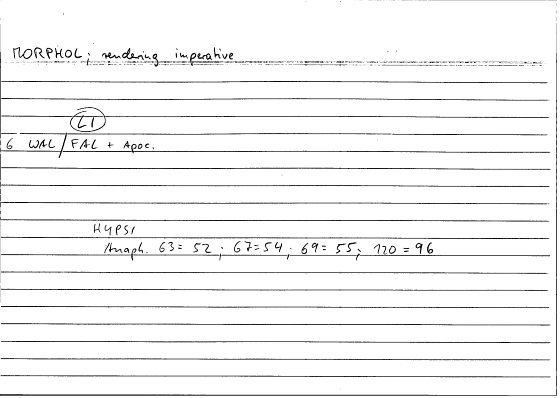 MORPHOL; rendering imperative
LI
6 WAL/FAL + Apoc.
HYPSI
Anaph. 63 = 52 ; 67=54 ; 69 = 55; 120 = 96